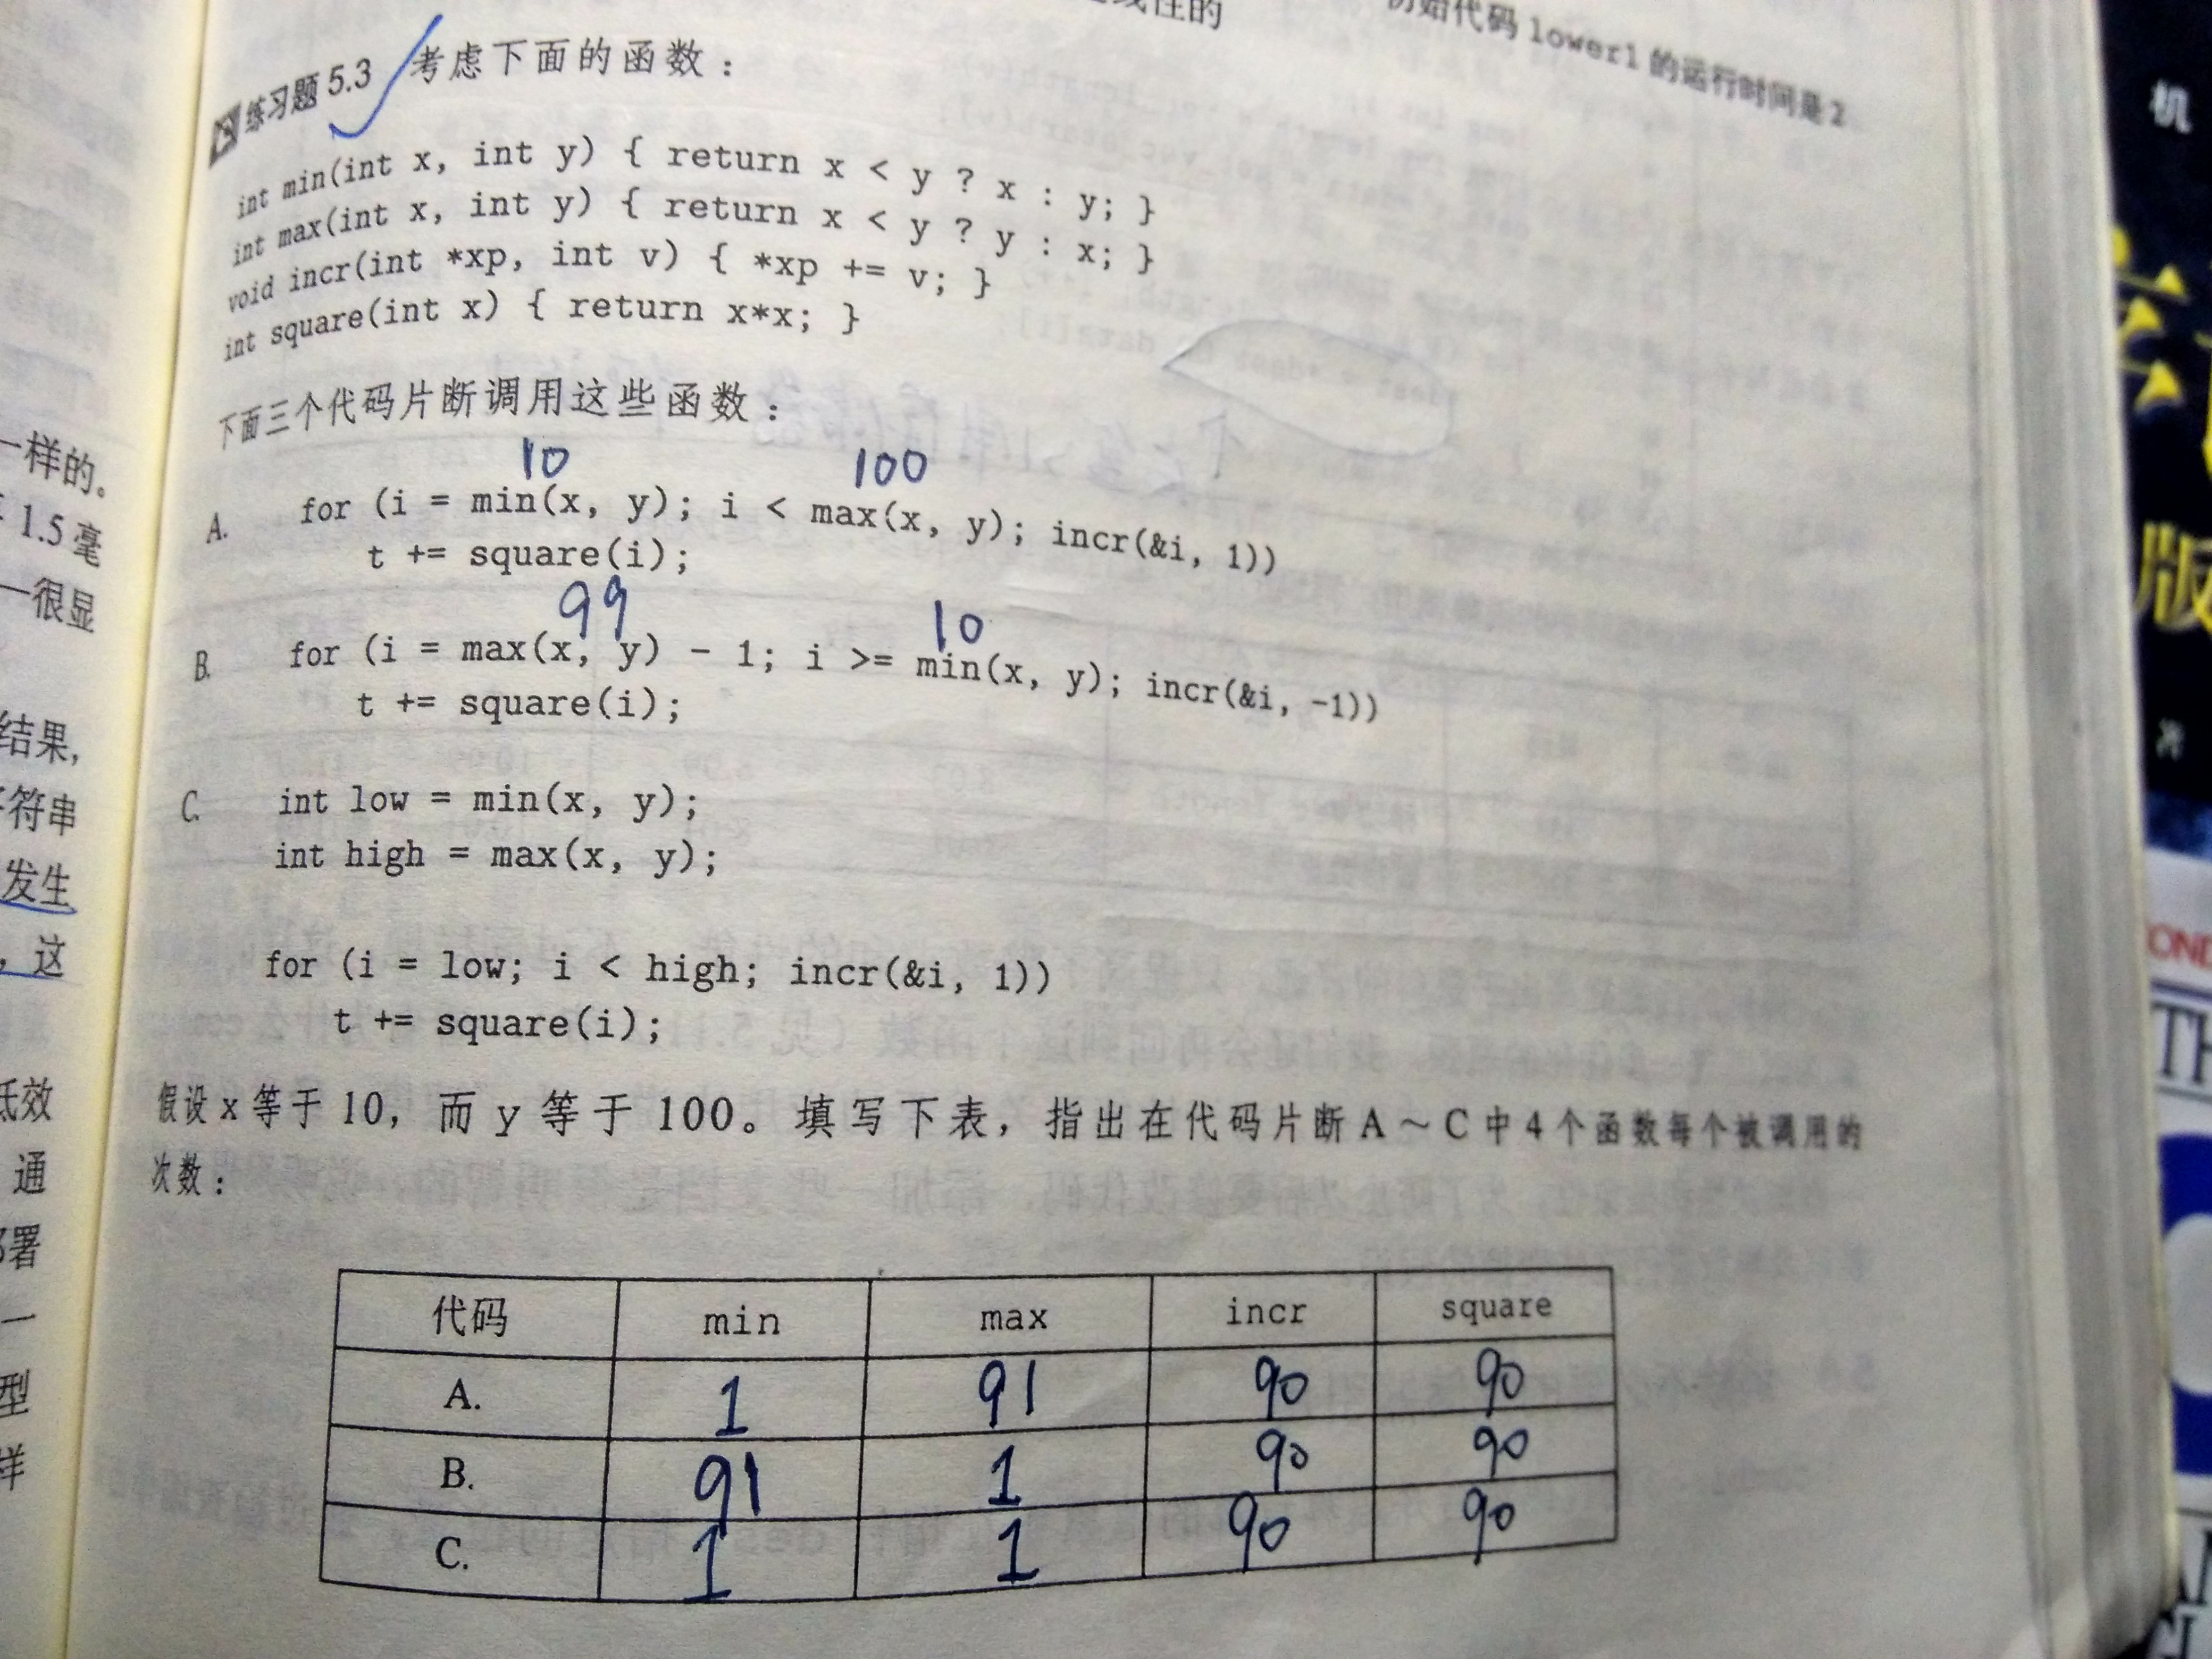 线性的
初始代码 lower1 的运行时间是 2
练习题 5.3 考虑下面的函数：
int min(int x, int y) { return x < y ? x : y; }
int max(int x, int y) { return x < y ? y : x; }
void incr(int *xp, int v) { *xp += v; }
int square(int x) { return x*x; }
下面三个代码片断调用这些函数：
10 100
A. for (i = min(x, y); i < max(x, y); incr(&i, 1))
t += square(i);
99 10
B. for (i = max(x, y) - 1; i >= min(x, y); incr(&i, -1))
t += square(i);
C. int low = min(x, y);
int high = max(x, y);
for (i = low; i < high; incr(&i, 1))
t += square(i);
假设 x 等于 10，而 y 等于 100。填写下表，指出在代码片断 A ~ C 中 4 个函数每个被调用的
次数：
代码 min max incr square
A. 1 91 90 90
B. 91 1 90 90
C. 1 1 90 90
一样的。
1.5 毫
一很显
结果，
符串
发生
，这
低效
通
署
一
型
样
机
版
TH